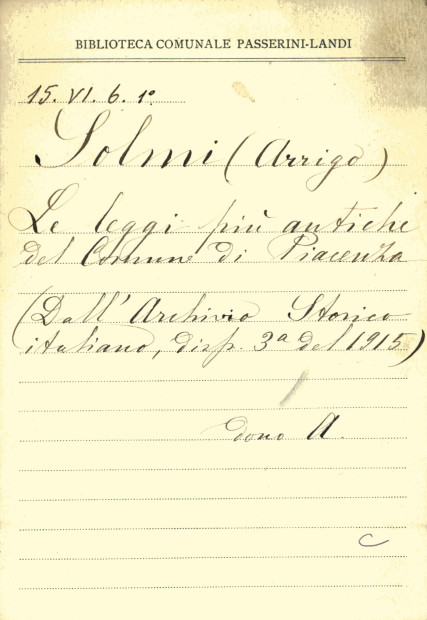 BIBLIOTECA COMUNALE PASSERINI-LANDI
15. VI. 6. 1º
Solmi (Arrigo)
Le leggi più antiche
del Comune di Piacenza
(Dall' Archivio Storico
italiano, disp. 3ª del 1915)
dono A.
C